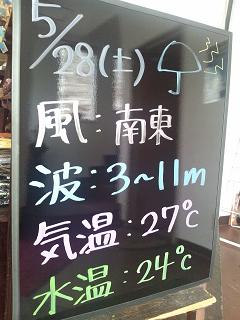 5/28(土)
風:南東
波:3~11m
気温:27℃
水温:24℃